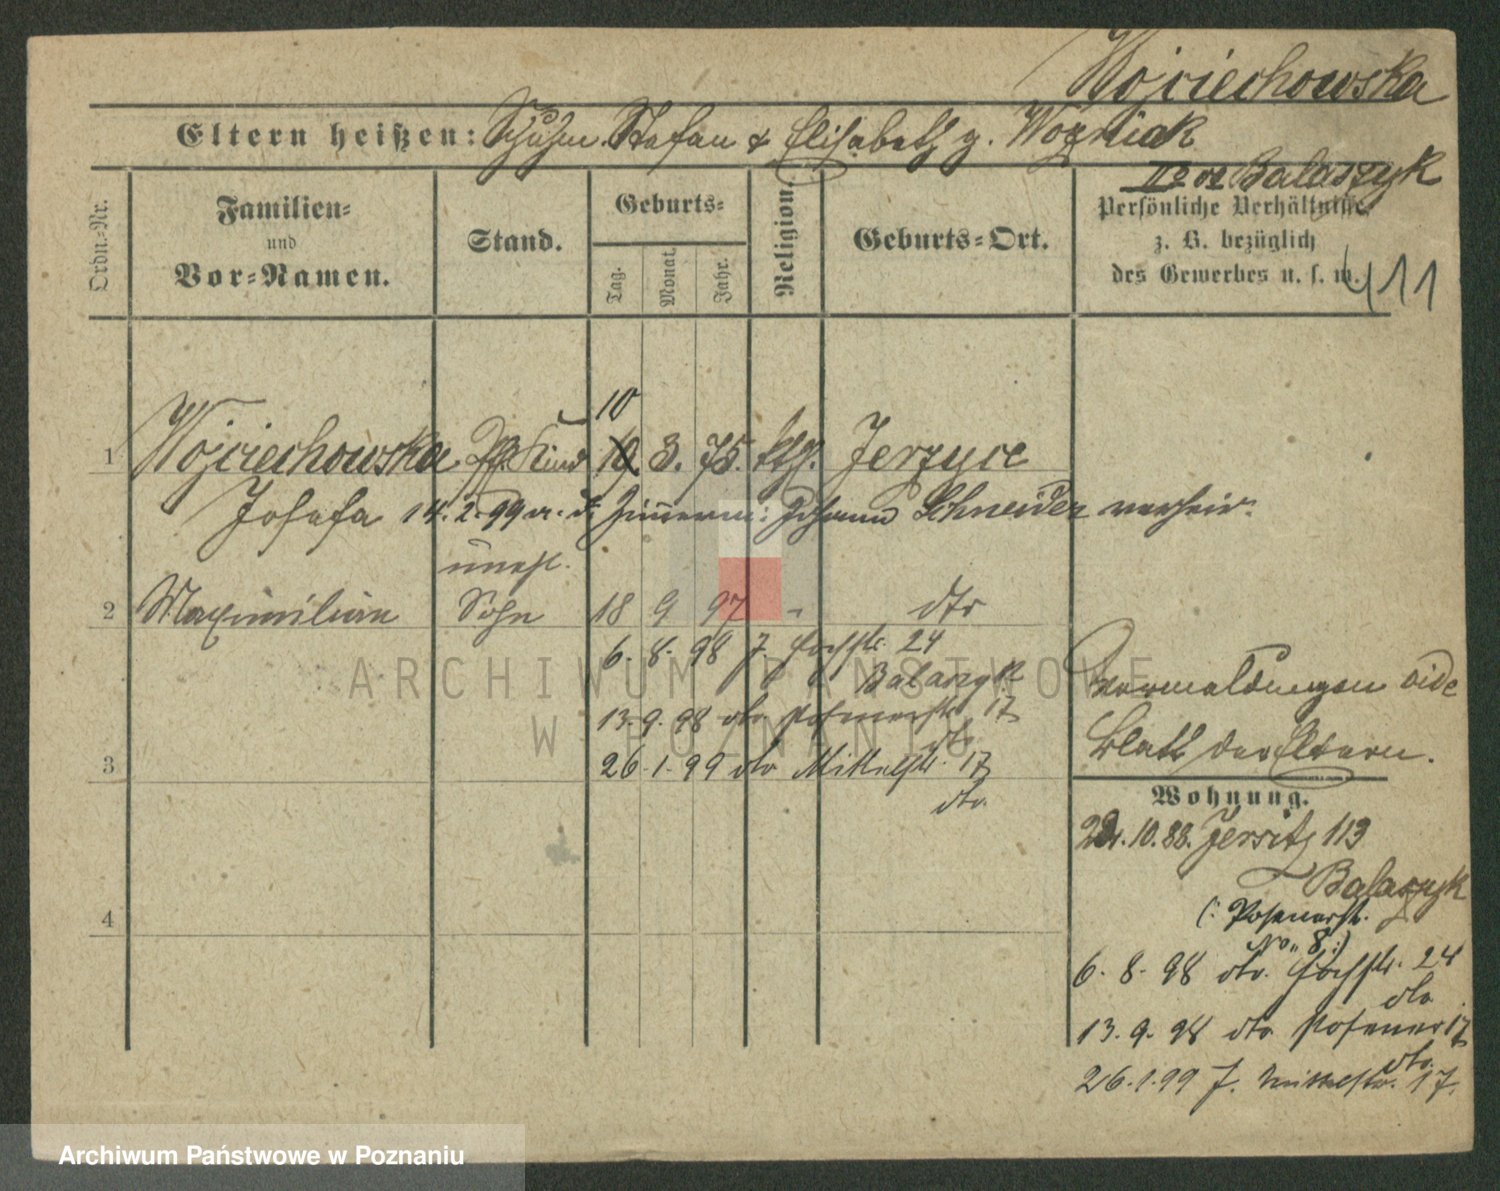 Wojciechowska
Eltern heißen: Schuhm. Stefan & Elisabeth g. Woźniak
II° v. Balaszyk
Ordn.-Nr.
Familien-
und
Vor-Namen.
Stand.
Geburts-
Tag.
Monat.
Jahr.
Religion.
Geburts-Ort.
Persönliche Verhältnisse
z. B. bezüglich
des Gewerbes u. s. w.
411
10
1 Wojciechowska Kind 19 3. 75. kth. Jerzyce
Josefa 14. 2. 99 m. d. Zimmerm: Johann Schneider verheir.
unehl.
2 Maximilian Sohn 18 9 97 " dto
6. 8. 98 J. Hochstr. 24
Balaszyk
13. 9. 98 dto Posenerstr. 17
dto
3 26. 1. 99 dto Mittelstr. 17
dto.
4
Vermeldungen vide
Blatt der Eltern.
Wohnung.
10. 88. Jersitz 113
Balaszyk
(: Posenerstr.
No. 8 :)
6. 8. 98 dto. Hochstr. 24
dto
13. 9. 98 dto Posener 17
dto.
26. 1. 99 J. Mittelstr. 17.
ARCHIWUM PAŃSTWOWE
W POZNANIU
Archiwum Państwowe w Poznaniu